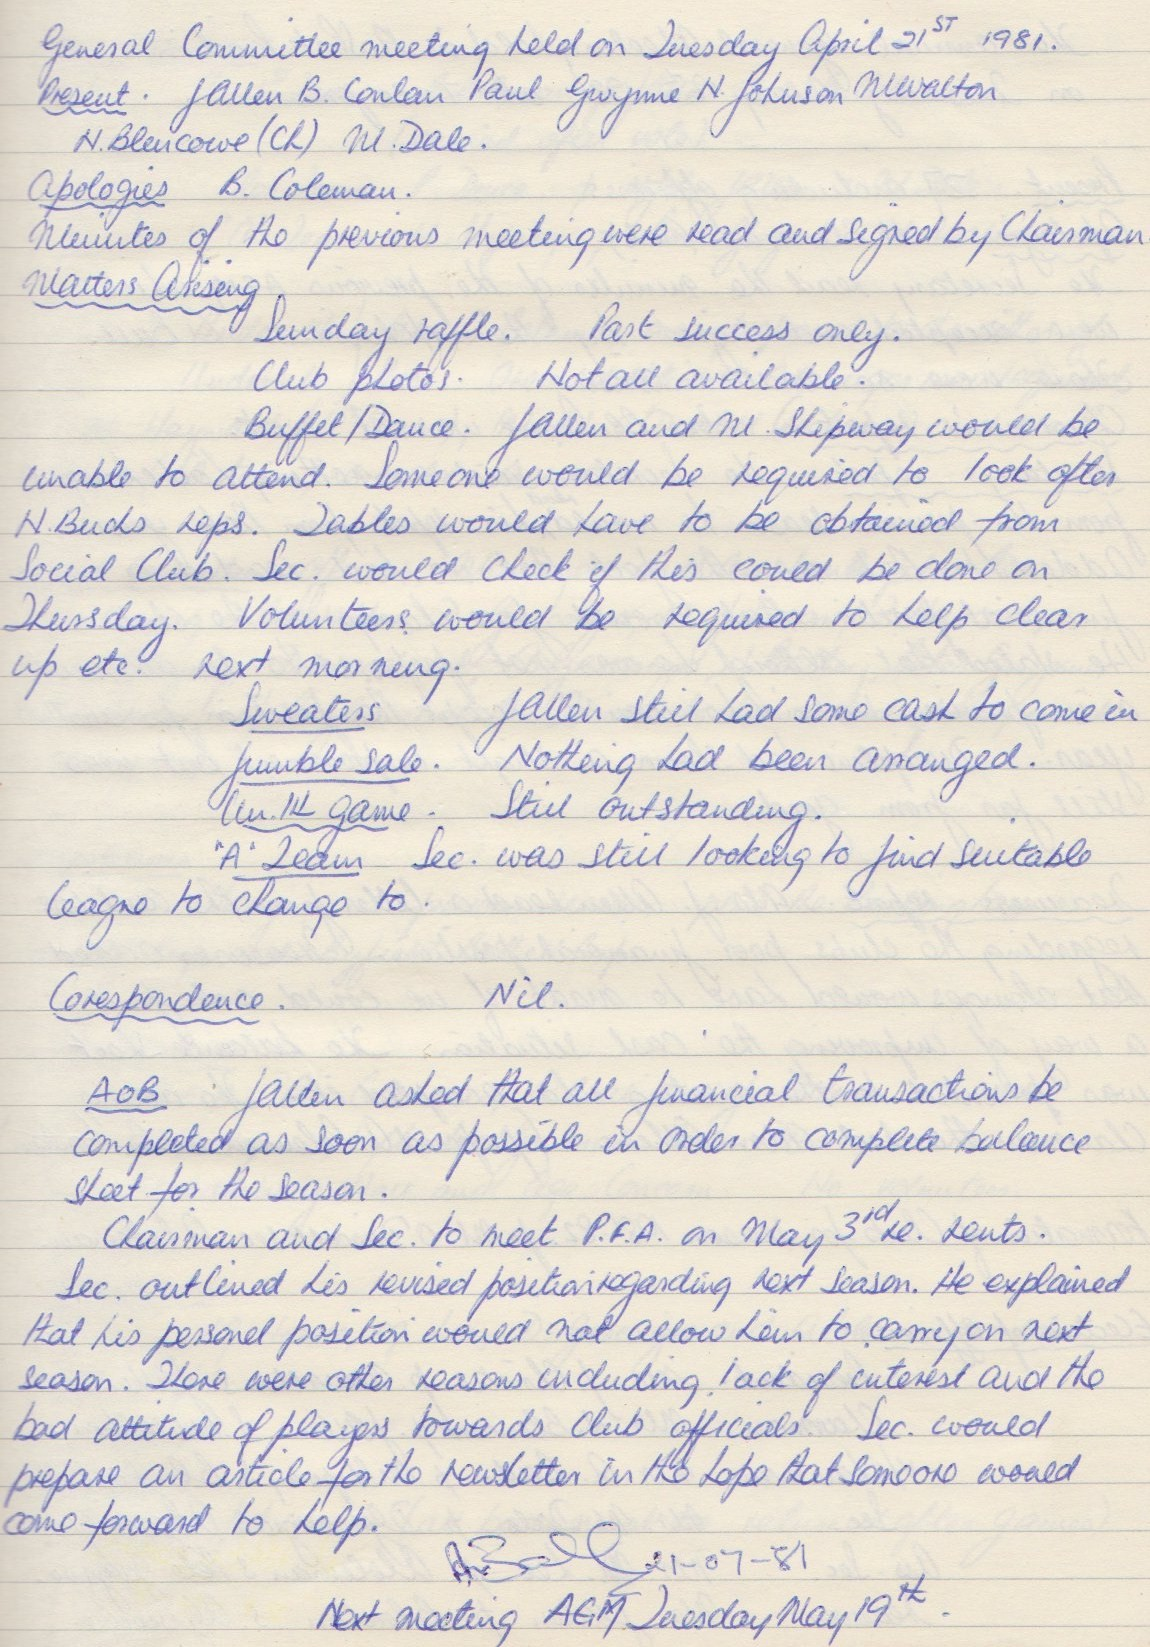 General Committee meeting held on Tuesday April 21ST 1981.
Present. J Allen B. Conlan Paul Gwynne N. Johnson M Walton
N. Blencowe (Ch) M. Dale.
Apologies B. Coleman.
Minutes of the previous meeting were read and signed by Chairman
Matters Arising
Sunday raffle. Part success only.
Club photos. Not all available.
Buffet/Dance. J Allen and M. Shipway would be
unable to attend. Someone would be required to look after
N. Bucks reps. Tables would have to be obtained from
Social Club. Sec. would check if this could be done on
Thursday. Volunteers would be required to help clear
up etc. next morning.
Sweaters J Allen still had some cash to come in
Jumble sale. Nothing had been arranged.
Un. 14 game. Still outstanding.
"A" Team Sec. was still looking to find suitable
league to change to.
Corespondence. Nil.
AOB J Allen asked that all financial transactions be
completed as soon as possible in order to complete balance
sheet for the season.
Chairman and Sec. to meet P.F.A. on May 3rd re. rents.
Sec. outlined his revised position regarding next season. He explained
that his personel position would not allow him to carry on next
season. There were other reasons including lack of interest and the
bad attitude of players towards club officials. Sec. would
prepare an article for the newsletter in the hope that someone would
come forward to help.
21-07-81
Next meeting AGM Tuesday May 19th.